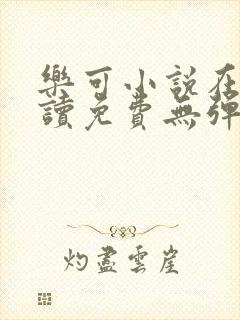 樂可小說在
讀免費無彈
灼盡雲崖